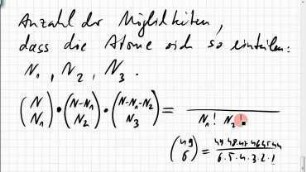 Anzahl der Möglichkeiten,
dass die Atome sich so einteilen:
N₁, N₂, N₃.
(N N₁) • (N-N₁ N₂) • (N-N₁-N₂ N₃) = ―――
N₁! N₂!
(49 6) = 49·48·47·46·45·44 / 6·5·4·3·2·1